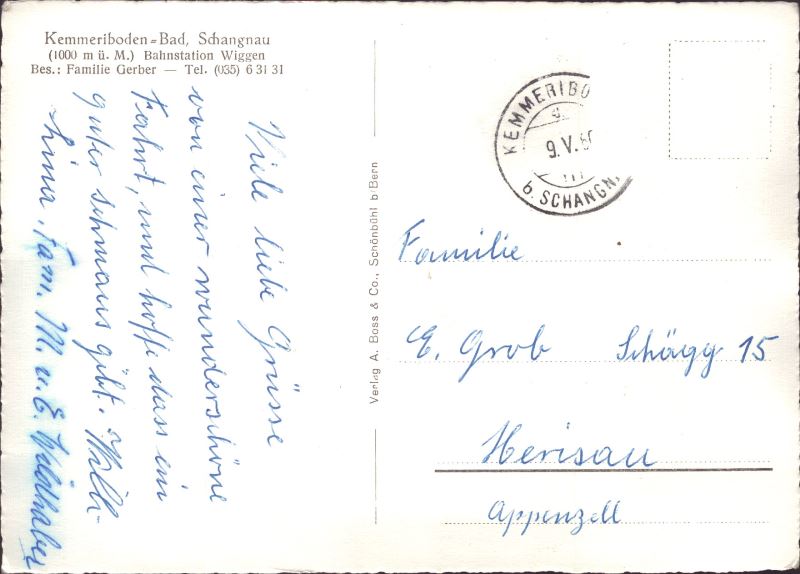 Kemmeriboden=Bad, Schangnau
(1000 m ü. M.) Bahnstation Wiggen
Bes.: Familie Gerber — Tel. (035) 6 31 31
Viele liebe Grüsse
von einer wunderschöne
Fahrt, und hoffe dass ein
guter schmaus gibt. Willi
Lina, Fam. M. u. E. Waldhaber
Verlag A. Boss & Co., Schönbühl b/Bern
KEMMERIBO
9.V.60
b. SCHANGN.
Familie
E. Grob Schägg 15
Herisau
Appenzell